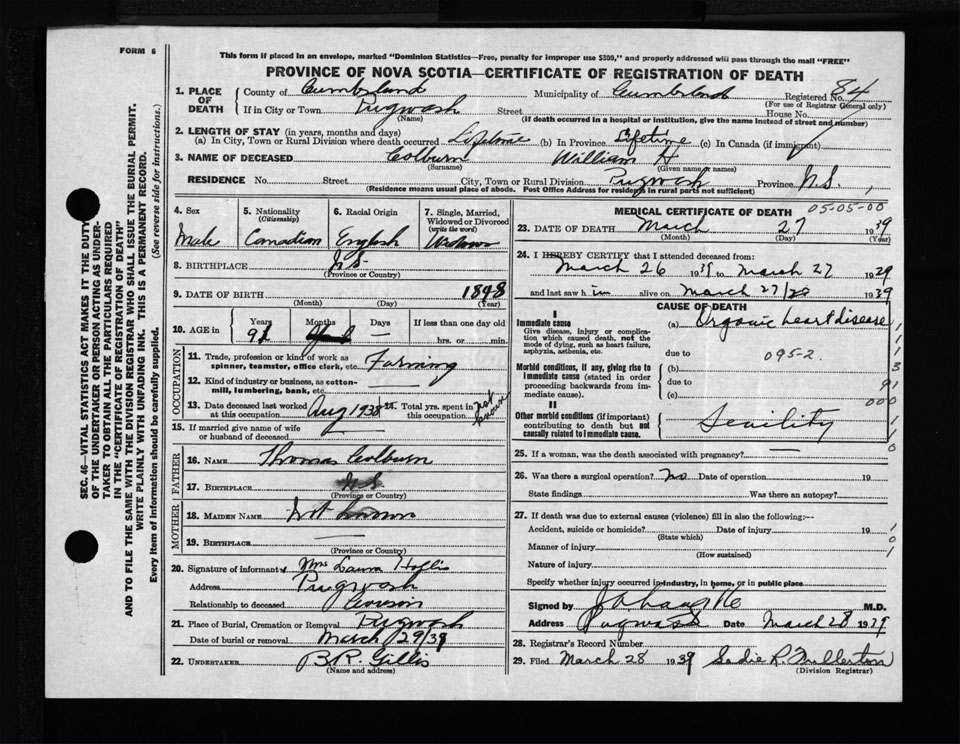 FORM 6
This form if placed in an envelope, marked "Dominion Statistics—Free, penalty for improper use $300," and properly addressed will pass through the mail "FREE"
PROVINCE OF NOVA SCOTIA—CERTIFICATE OF REGISTRATION OF DEATH
84
1. PLACE OF DEATH
County of Cumberland Municipality of Cumberland Registered No.
(For use of Registrar General only)
If in City or Town Pugwash Street House No.
(Name) (If death occurred in a hospital or institution, give the name instead of street and number)
2. LENGTH OF STAY (in years, months and days)
(a) In City, Town or Rural Division where death occurred Lifetime (b) In Province Lifetime (c) In Canada (if immigrant)
3. NAME OF DECEASED Colburn William H
(Surname) (Given name or names)
RESIDENCE No. Street City, Town or Rural Division Pugwash Province N.S.
(Residence means usual place of abode. Post Office Address for residents in rural parts not sufficient)
SEC. 46—VITAL STATISTICS ACT MAKES IT THE DUTY
OF THE UNDERTAKER OR PERSON ACTING AS UNDER-
TAKER TO OBTAIN ALL THE PARTICULARS REQUIRED
IN THE "CERTIFICATE OF REGISTRATION OF DEATH"
AND TO FILE THE SAME WITH THE DIVISION REGISTRAR WHO SHALL ISSUE THE BURIAL PERMIT.
WRITE PLAINLY WITH UNFADING INK. THIS IS A PERMANENT RECORD.
Every item of information should be carefully supplied. (See reverse side for instructions.)
4. Sex Male
5. Nationality (Citizenship) Canadian
6. Racial Origin English
7. Single, Married, Widowed or Divorced (write the word)
8. BIRTHPLACE N.S.
(Province or Country)
9. DATE OF BIRTH 1848
(Month) (Day) (Year)
10. AGE in Years Months Days If less than one day old
91 — hrs. or min.
OCCUPATION
11. Trade, profession or kind of work as spinner, teamster, office clerk, etc. Farming
12. Kind of industry or business, as cotton-mill, lumbering, bank, etc.
13. Date deceased last worked at this occupation Aug 1938
14. Total yrs. spent in this occupation not known
15. If married give name of wife or husband of deceased —
FATHER
16. NAME Thomas Colburn
17. BIRTHPLACE N.S.
(Province or Country)
MOTHER
18. MAIDEN NAME Not known
19. BIRTHPLACE —
(Province or Country)
20. Signature of informant Mrs Laura Hollis
Address Pugwash
Relationship to deceased
21. Place of Burial, Cremation or Removal Pugwash
Date of burial or removal March 29/39
22. UNDERTAKER B.R. Gillis
(Name and address)
MEDICAL CERTIFICATE OF DEATH 05-05-00
23. DATE OF DEATH March 27 1939
(Month) (Day) (Year)
24. I HEREBY CERTIFY that I attended deceased from:
March 26 1939 to March 27 1939
and last saw him alive on March 27 1939
CAUSE OF DEATH
I
Immediate cause
Give disease, injury or complication which caused death, not the mode of dying, such as heart failure, asphyxia, asthenia, etc.
(a) Organic heart disease
due to 095-2
Morbid conditions, if any, giving rise to immediate cause (stated in order proceeding backwards from immediate cause).
(b)
due to
(c)
II
Other morbid conditions (if important) contributing to death but not causally related to immediate cause.
Senility
25. If a woman, was the death associated with pregnancy? —
26. Was there a surgical operation? No Date of operation 19
State findings Was there an autopsy?
27. If death was due to external causes (violence) fill in also the following:—
Accident, suicide or homicide? Date of injury 19
(State which)
Manner of injury
(How sustained)
Nature of injury
Specify whether injury occurred in industry, in home, or in public place
Signed by M.D.
Address Pugwash Date March 28 1939
28. Registrar's Record Number
29. Filed March 28 1939 Sadie R. Fullerton
(Division Registrar)